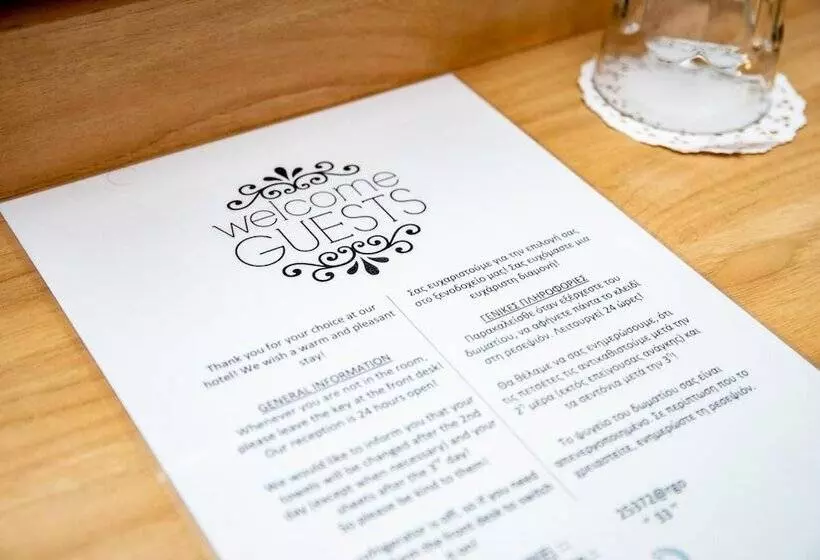 welcome
GUESTS
Thank you for your choice at our
hotel! We wish a warm and pleasant
stay!
GENERAL INFORMATION
Whenever you are not in the room,
please leave the key at the front desk!
Our reception is 24 hours open!
We would like to inform you that your
towels will be changed after the 2nd
day (except when necessary) and your
sheets after the 3rd day!
So please be kind to them!
refrigerator is off, so if you need
the front desk to switch
it on!
Σας ευχαριστούμε για την επιλογή σας
στο ξενοδοχείο μας! Σας ευχόμαστε μια
ευχάριστη διαμονή!
ΓΕΝΙΚΕΣ ΠΛΗΡΟΦΟΡΙΕΣ
Παρακαλείσθε όταν εξέρχεστε του
δωματίου, να αφήνετε πάντα το κλειδί
στη ρεσεψιόν. Λειτουργεί 24 ώρες!
Θα θέλαμε να σας ενημερώσουμε, ότι
τις πετσέτες τις αντικαθιστούμε μετά την
2η μέρα (εκτός επείγουσας ανάγκης) και
τα σεντόνια μετά την 3η!
Το ψυγείο του δωματίου σας είναι
απενεργοποιημένο. Σε περίπτωση που το
χρειαστείτε, ενημερώστε τη ρεσεψιόν.